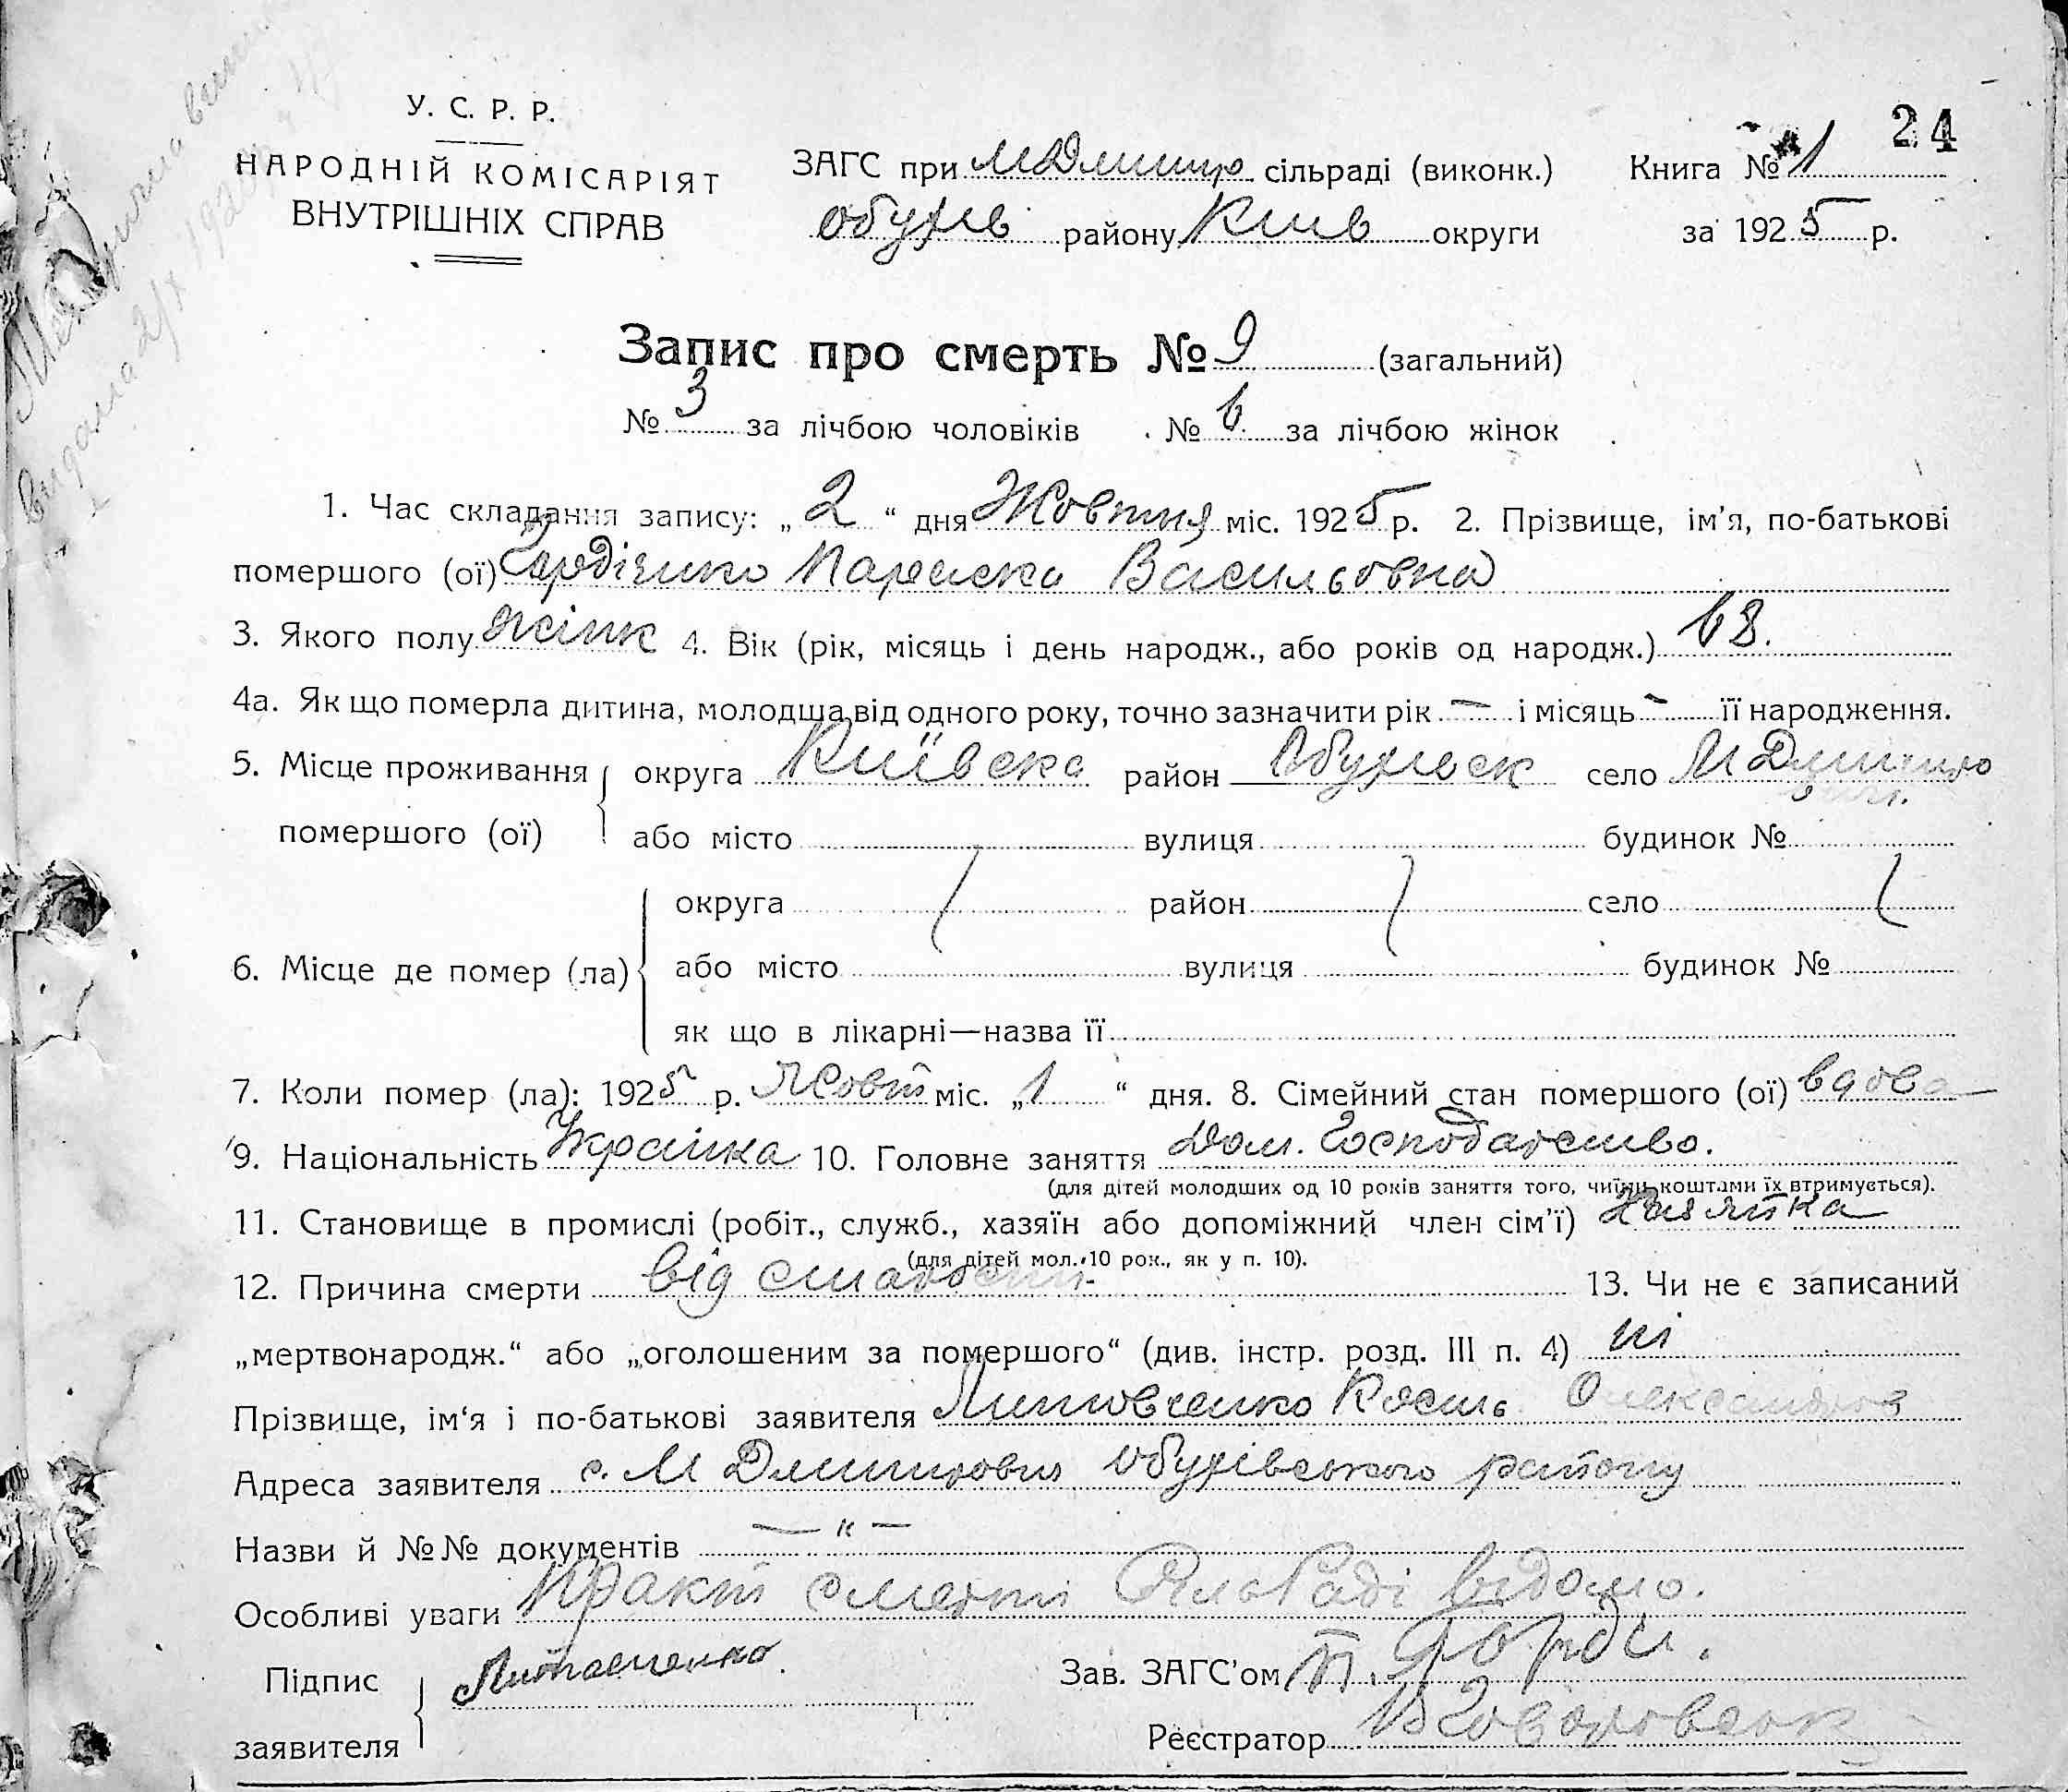 24
У. С. Р. Р.
НАРОДНІЙ КОМІСАРІЯТ
ВНУТРІШНІХ СПРАВ
ЗАГС при сільраді (виконк.)
обухів району Київ округи
Книга № 1
за 1925 р.
Запис про смерть № 9 (загальний)
№ 3 за лічбою чоловіків № 6 за лічбою жінок
1. Час складання запису: „ 2 “ дня Жовтня міс. 1925 р. 2. Прізвище, ім'я, по-батькові
помершого (ої) Параска Васильовна
3. Якого полу жінк 4. Вік (рік, місяць і день народж., або років од народж.) 68.
4а. Як що померла дитина, молодша від одного року, точно зазначити рік — і місяць — її народження.
5. Місце проживання помершого (ої) округа Київска район Обухівск село
або місто вулиця будинок №
6. Місце де помер (ла) округа район село
або місто вулиця будинок №
як що в лікарні—назва її
7. Коли помер (ла): 1925 р. Жовт міс. „ 1 “ дня. 8. Сімейний стан помершого (ої) вдова
9. Національність Українка 10. Головне заняття Дом. Господарство.
(для дітей молодших од 10 років заняття того, чиїми коштами їх втримується).
11. Становище в промислі (робіт., служб., хазяїн або допоміжний член сім'ї) Хазяйка
(для дітей мол. 10 рок., як у п. 10).
12. Причина смерти від старости 13. Чи не є записаний
„мертвонародж.“ або „оголошеним за помершого“ (див. інстр. розд. III п. 4) ні
Прізвище, ім'я і по-батькові заявителя Литовченко Олександров
Адреса заявителя с. М Дмитровка Обухівського району
Назви й №№ документів — " —
Особливі уваги Факт смерти СільРаді відомо.
Підпис заявителя Литовченко
Зав. ЗАГС'ом
Реєстратор